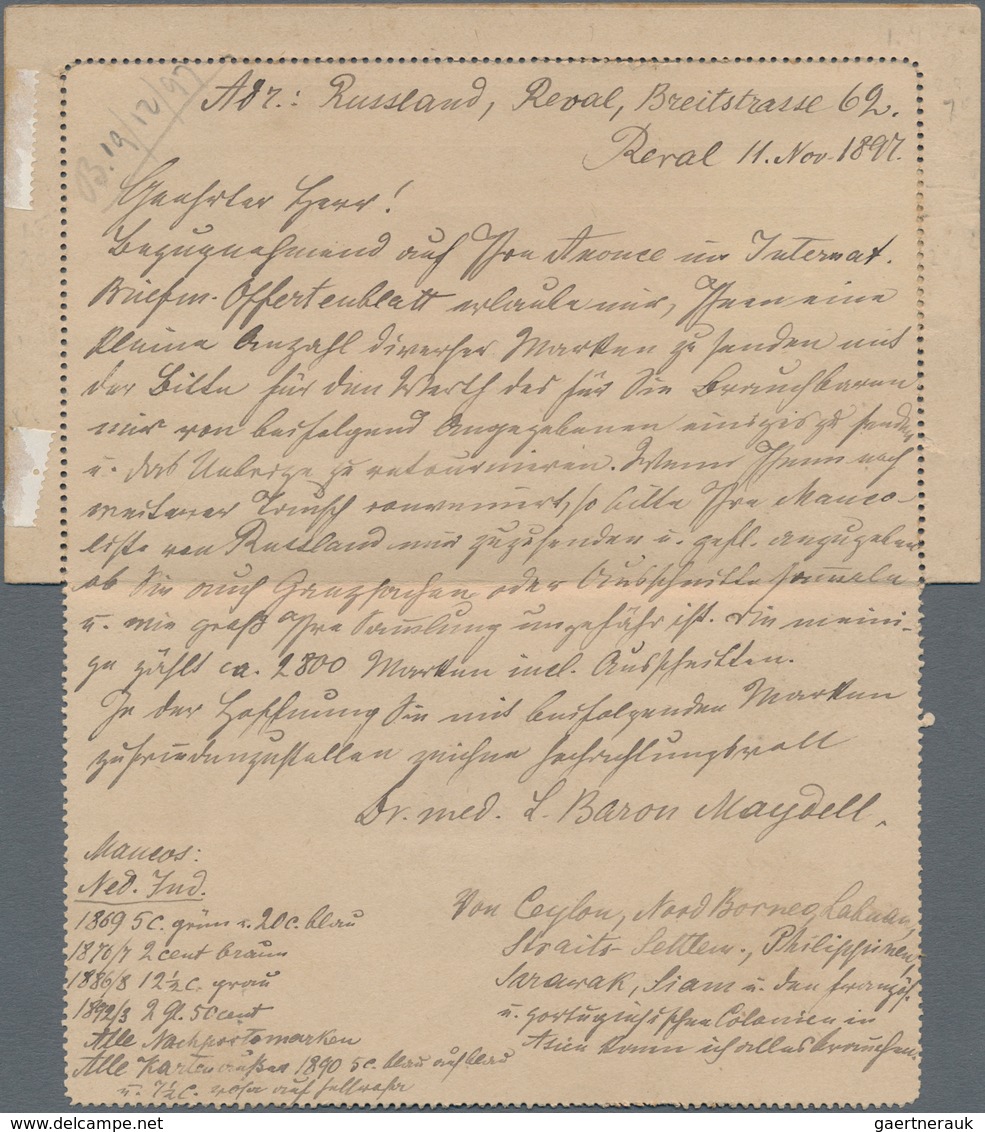 B. 19/12/97
Adr.: Russland, Reval, Breitstrasse 62.
Reval 11. Nov. 1897.
Geehrter Herr!
Bezugnehmend auf Ihre Anonce im Internat.
Briefm. Offertenblatt erlaube mir, Ihnen eine
kleine Anzahl diverser Marken zu senden mit
der Bitte für den Werth des für Sie Brauchbaren
mir von beifolgend Angegebenen einiges zu senden
u. das Uebrige zu retournieren. Wenn Ihnen noch
weiterer Tausch conveniert, so bitte Ihre Manco-
liste von Russland mir zuzusenden u. gefl. anzugeben
ob Sie auch Ganzsachen oder Ausschnitte sammeln
u. wie groß Ihre Sammlung ungefähr ist. Die meini-
ge zählt ca. 2800 Marken incl. Ausschnitten.
In der Hoffnung Sie mit beifolgenden Marken
zufriedenzustellen zeichne hochachtungsvoll
Dr. med. L. Baron Maydell.
Mancos:
Ned. Ind.
1869 5 c. grün u. 20 c. blau
1870/7 2 cent braun
1886/8 12½ c. grau
1892/3 2 Gl. 50 cent
Alle Nachportomarken
Alle Karten außer 1890 5 c. blau auf blau
u. 7½ c. auf
Von Ceylon, Nord Borneo, Labuan,
Straits Settlem., Philippinen,
Sarawak, Siam u. den französ.
u. portugiesischen Colonien in
Asien kann ich alles brauchen.
gaertnerauk